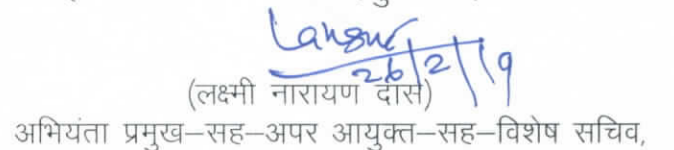 26/2/19
(लक्ष्मी नारायण दास)
अभियंता प्रमुख–सह–अपर आयुक्त–सह–विशेष सचिव,